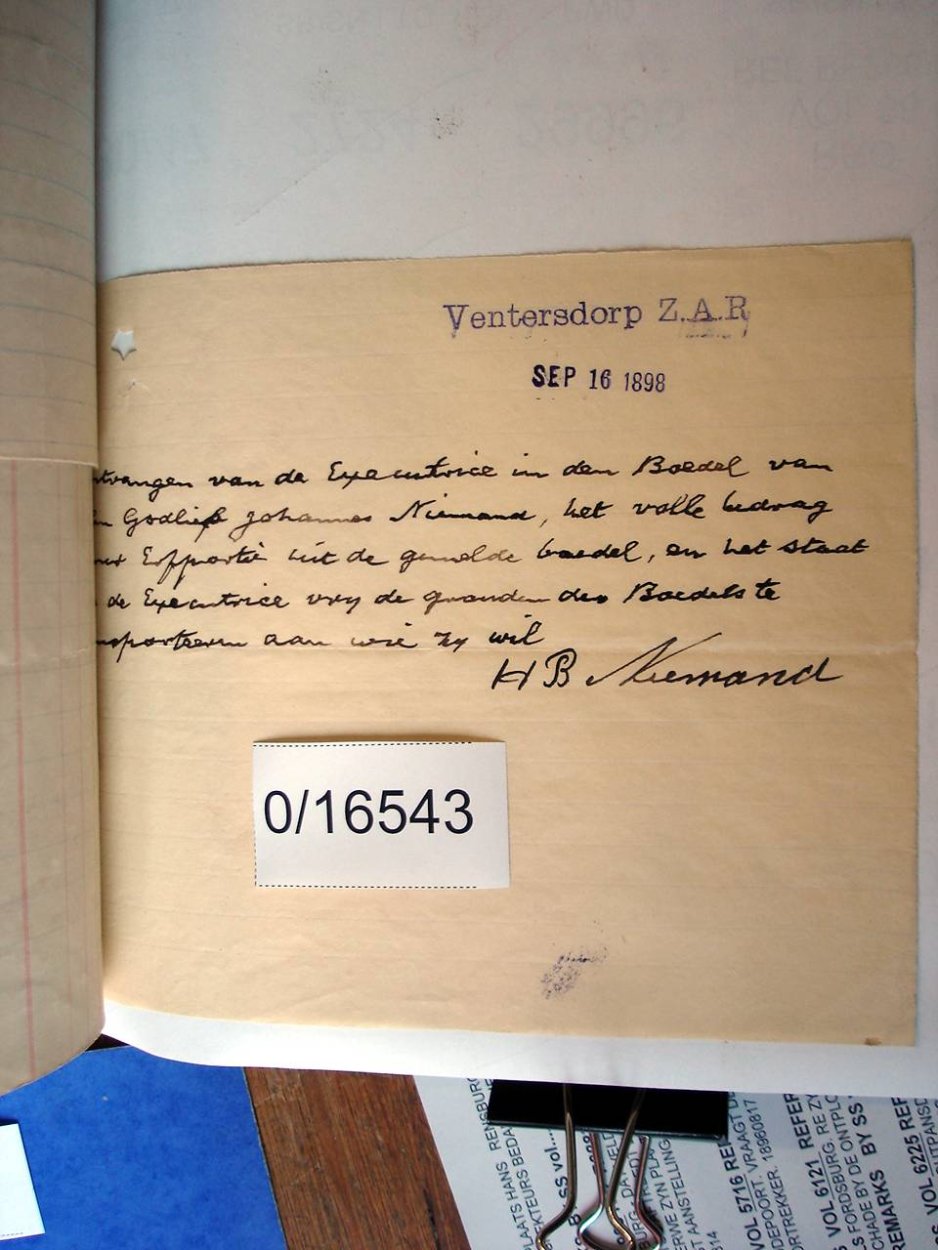 Ventersdorp Z.A.R
SEP 16 1898
tvangen van de Executrice in den Boedel van
n Godlief Johannes Niemand, het volle bedrag
Erfportie uit de gemelde boedel, en het staat
de Executrice vry de gronden des Boedels te
nsporteeren aan wie zy wil
H B Niemand
0/16543
PLAATS HANS RENSBURG
EKTEURS BEDA
SS vol...
ERWE ZYN PLA
T AANSTELLING
VOL 5716 RE
DEPOORT. VRAAGT D
ORTREKKER. 18960817
314
VOL 6121 REFER
FORDSBURG. RE ZY
S BY DE ONTPLO
CHADE BY SS
REMARKS
VOL 6225 REF